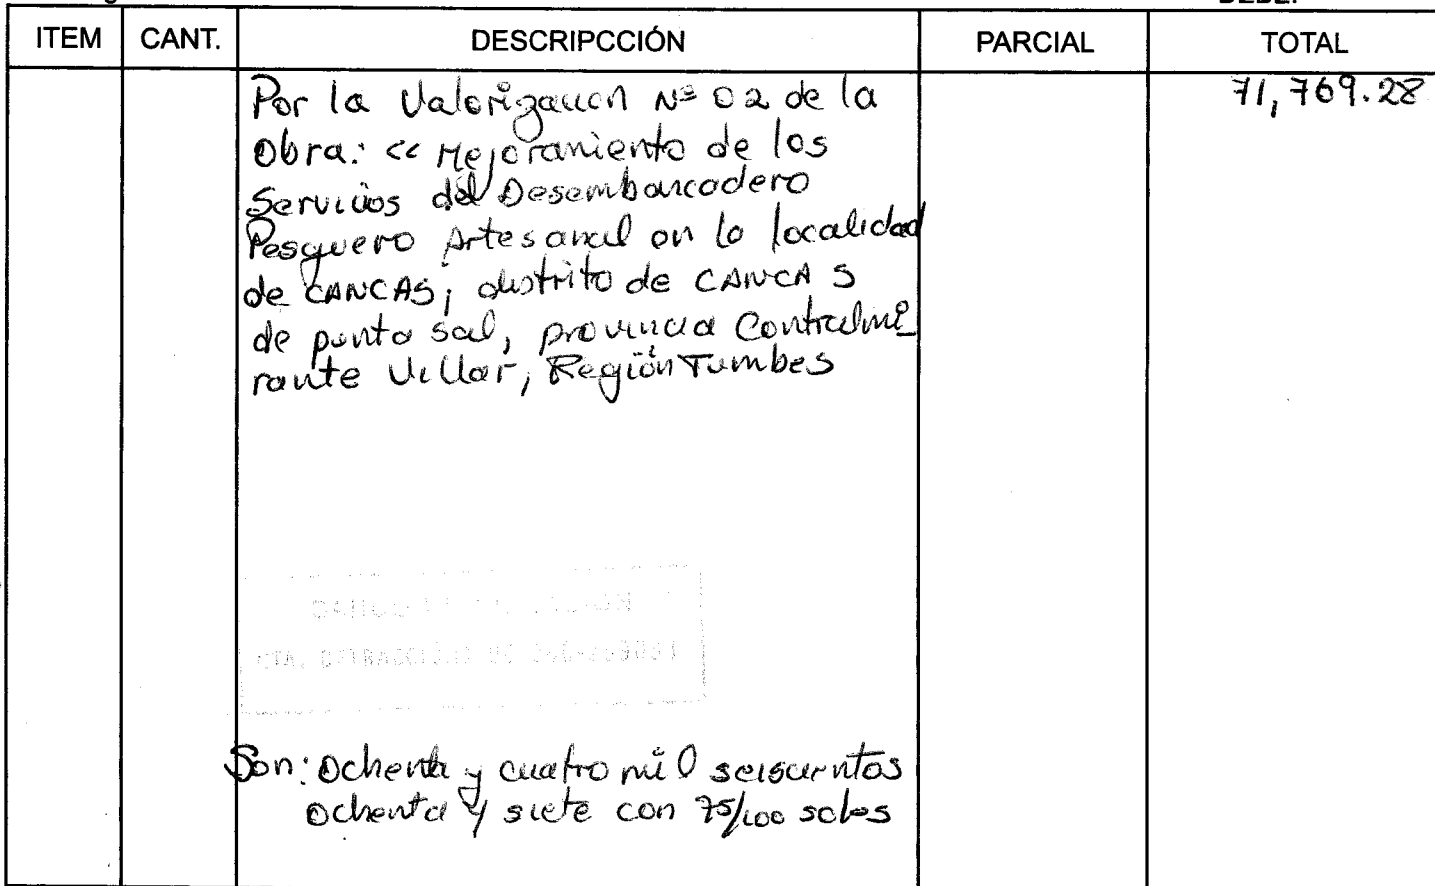 ITEM CANT. DESCRIPCCIÓN PARCIAL TOTAL
Por la Valorización Nº 02 de la 71,769.28
Obra: << Mejoramiento de los
Servicios del Desembarcadero
Pesquero Artesanal en la localidad
de CANCAS; distrito de CANCAS
de punta sal, provincia Contralmi_
rante Villar, Región Tumbes
CTA. DETRACCIONES
Son: Ochenta y cuatro mil seiscientos
Ochenta y siete con 75/100 soles